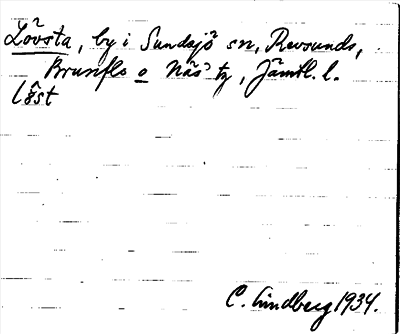 Lövsta, by i Sundsjö sn, Revsunds,
Brunflo o Näs' tg, Jämtl. l.
C. Lindberg 1934.